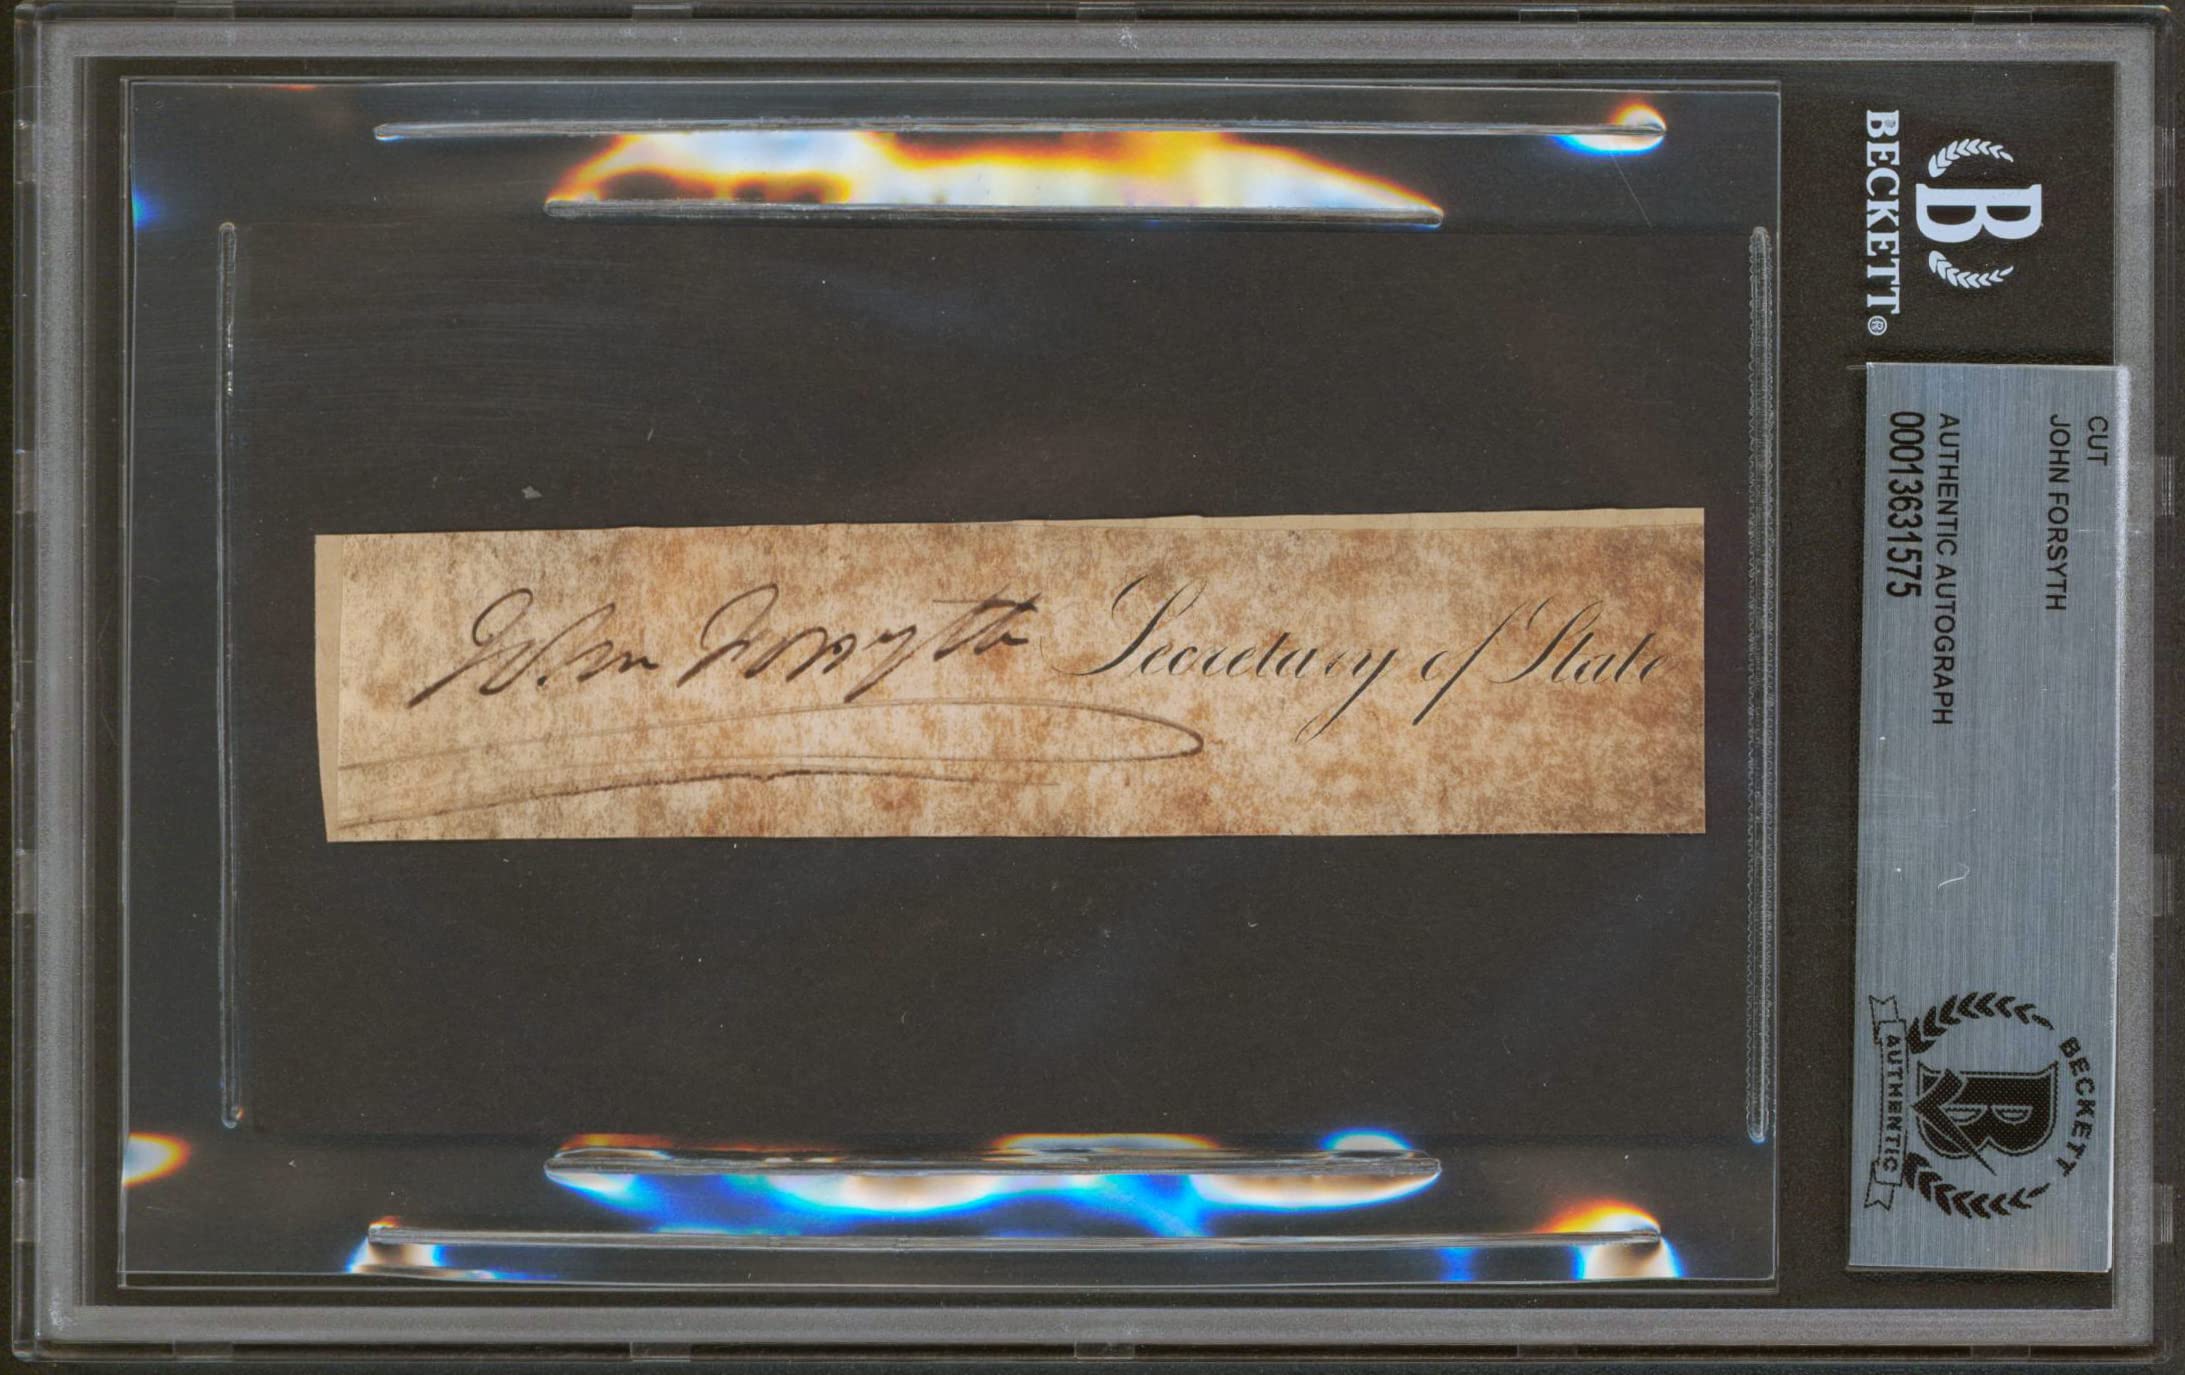 John Forsyth Secretary of State
B
BECKETT®
CUT
JOHN FORSYTH
AUTHENTIC AUTOGRAPH
00013631575
BECKETT
B
AUTHENTIC